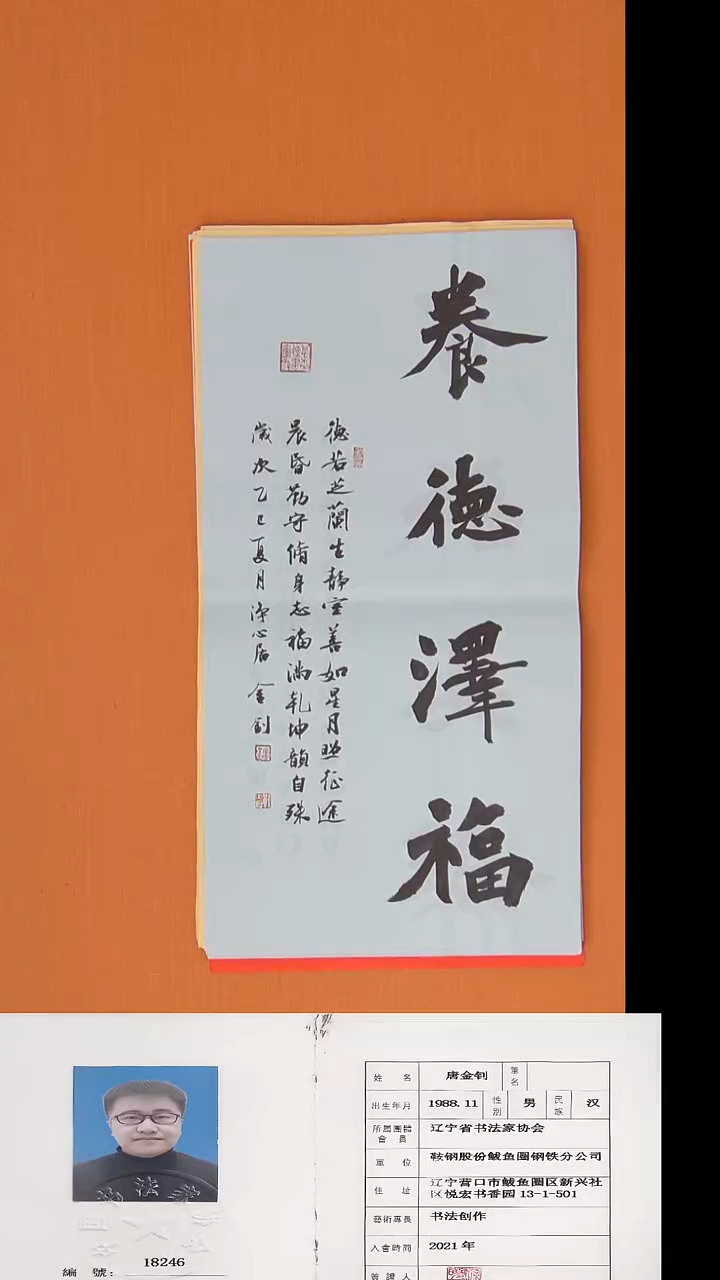 養德澤福
德若芝蘭生靜室善如星月照征途
晨昏勤守脩身志福滿乾坤韻自殊
歲次乙巳夏月淨心居金釗
法
18246
編 號:
姓 名 唐金钊 筆名
出生年月 1988.11 性別 男 民族 汉
所屬團體會員 辽宁省书法家协会
單 位 鞍钢股份鲅鱼圈钢铁分公司
住 址 辽宁营口市鲅鱼圈区新兴社
区悦宏书香园 13-1-501
藝術專長 书法创作
入會時間 2021 年
簽 證 人